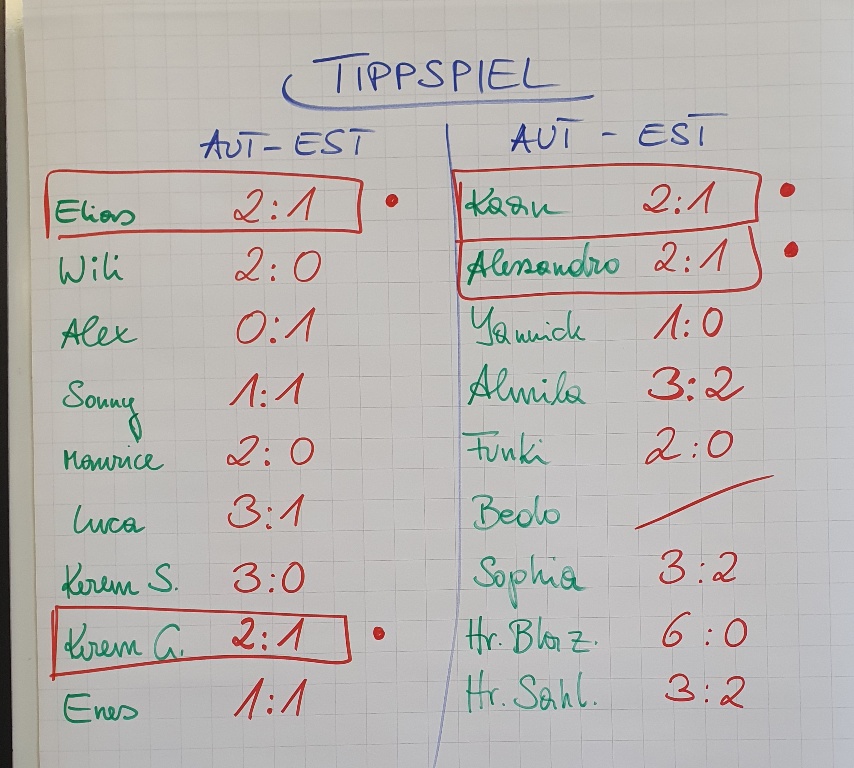 TIPPSPIEL
AUT-EST
Elias 2:1
Wili 2:0
Alex 0:1
Sonny 1:1
Maurice 2:0
Luca 3:1
Kerem S. 3:0
Kerem G. 2:1
Enes 1:1
AUT - EST
Kaan 2:1
Alessandro 2:1
Yannick 1:0
Almila 3:2
Funki 2:0
Bedo
Sophia 3:2
Hr. Blaz. 6:0
Hr. Sahl. 3:2